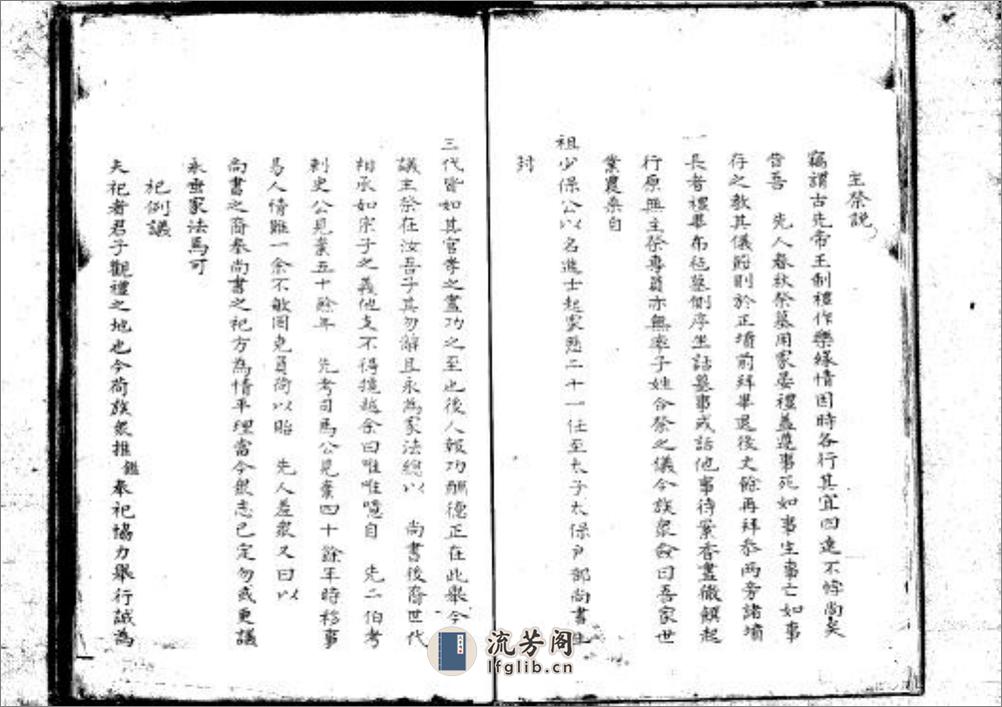 主祭説
竊謂古先帝王制禮作樂緣情因時各行其宜四達不悖尚矣
昔吾 先人春秋祭墓用家宴禮蓋遵事死如事生事亡如事
存之教其儀節則於正墳前拜畢退後丈餘再拜恭兩旁諸墳
一長者禮畢布毡墓側序坐話墓事或話他事待案香盡徹饌起
行原無主祭專員亦無率子姓合祭之儀今族衆僉曰吾家世
業農桑自
祖少保公以名進士起家歷二十一任至太子太保户部尚書
封
三代皆如其官孝之盡功之至也後人報功酬德正在此舉今
議主祭在汝吾子其勿辭且永為家法總以 尚書後裔世代
相承如宗子之義他支不得攙越余曰唯唯噫自 先二伯考
刺史公見棄五十餘年 先考司馬公見棄四十餘年時移事
易人情雖一余不敏罔克負荷以貽 先人羞衆又曰以
尚書之裔奉尚書之祀方為情平理當今衆志已定勿或更議
永垂家法焉可
祀例議
夫祀者君子觀禮之地也今荷族衆推鑑奉祀協力舉行誠為
流芳阁
lfglib.cn